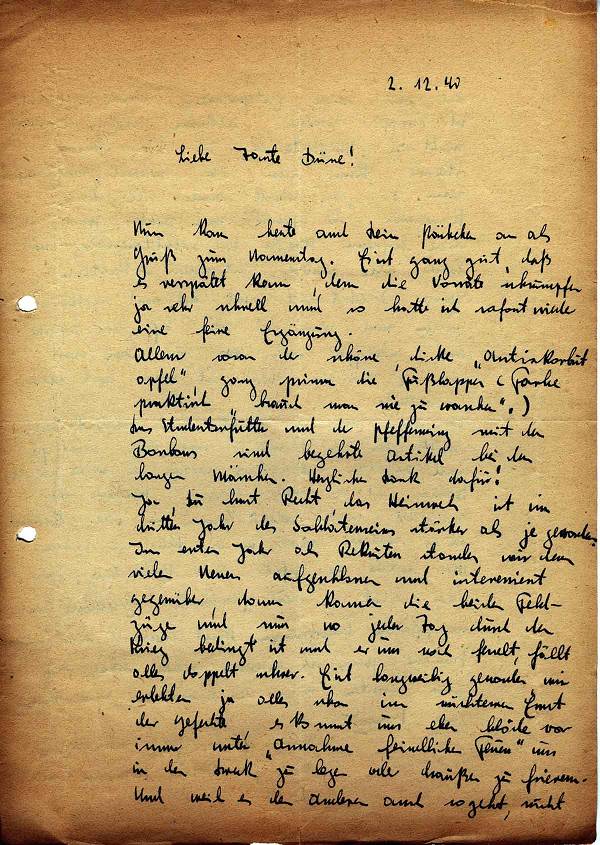 2. 12. 40
Liebe Tante Düne!
Nun kam heute auch Dein Päckchen an als
Gruß zum Namenstag. Erst ganz gut, daß
es verspätet kam, denn die Vorräte schrumpfen
ja sehr schnell und so hatte ich sofort wieder
eine feine Ergänzung.
Allem voran der schöne, dicke „Antiskorbut
apfel", ganz prima die Fußlappen (Farbe
praktisch, braucht man nie zu waschen".)
Das Studentenfutter und der Pfefferming mit den
Bonbons sind begehrte Artikel bei den
langen Märschen. Herzlichen Dank dafür!
Ja, Du hast Recht, das Heimweh ist im
dritten Jahr des Soldatenseins stärker als je geworden.
Im ersten Jahr als Rekruten standen wir dem
vielen Neuen aufgeschlossen und interessiert
gegenüber, dann kamen die beiden Feld-
züge und nun wo jeder Tag durch den
Krieg bedingt ist und er uns noch fesselt, fällt
alles doppelt schwer. Erst langweilig geworden wir
erlebten ja alles schon im nüchternen Ernst
der Gefechte, es kommt uns eben blöde vor
immer unter „Annahme feindlichen Feuers" uns
in den Dreck zu legen oder draußen zu frieren.
Und weil es den anderen auch so geht, nicht